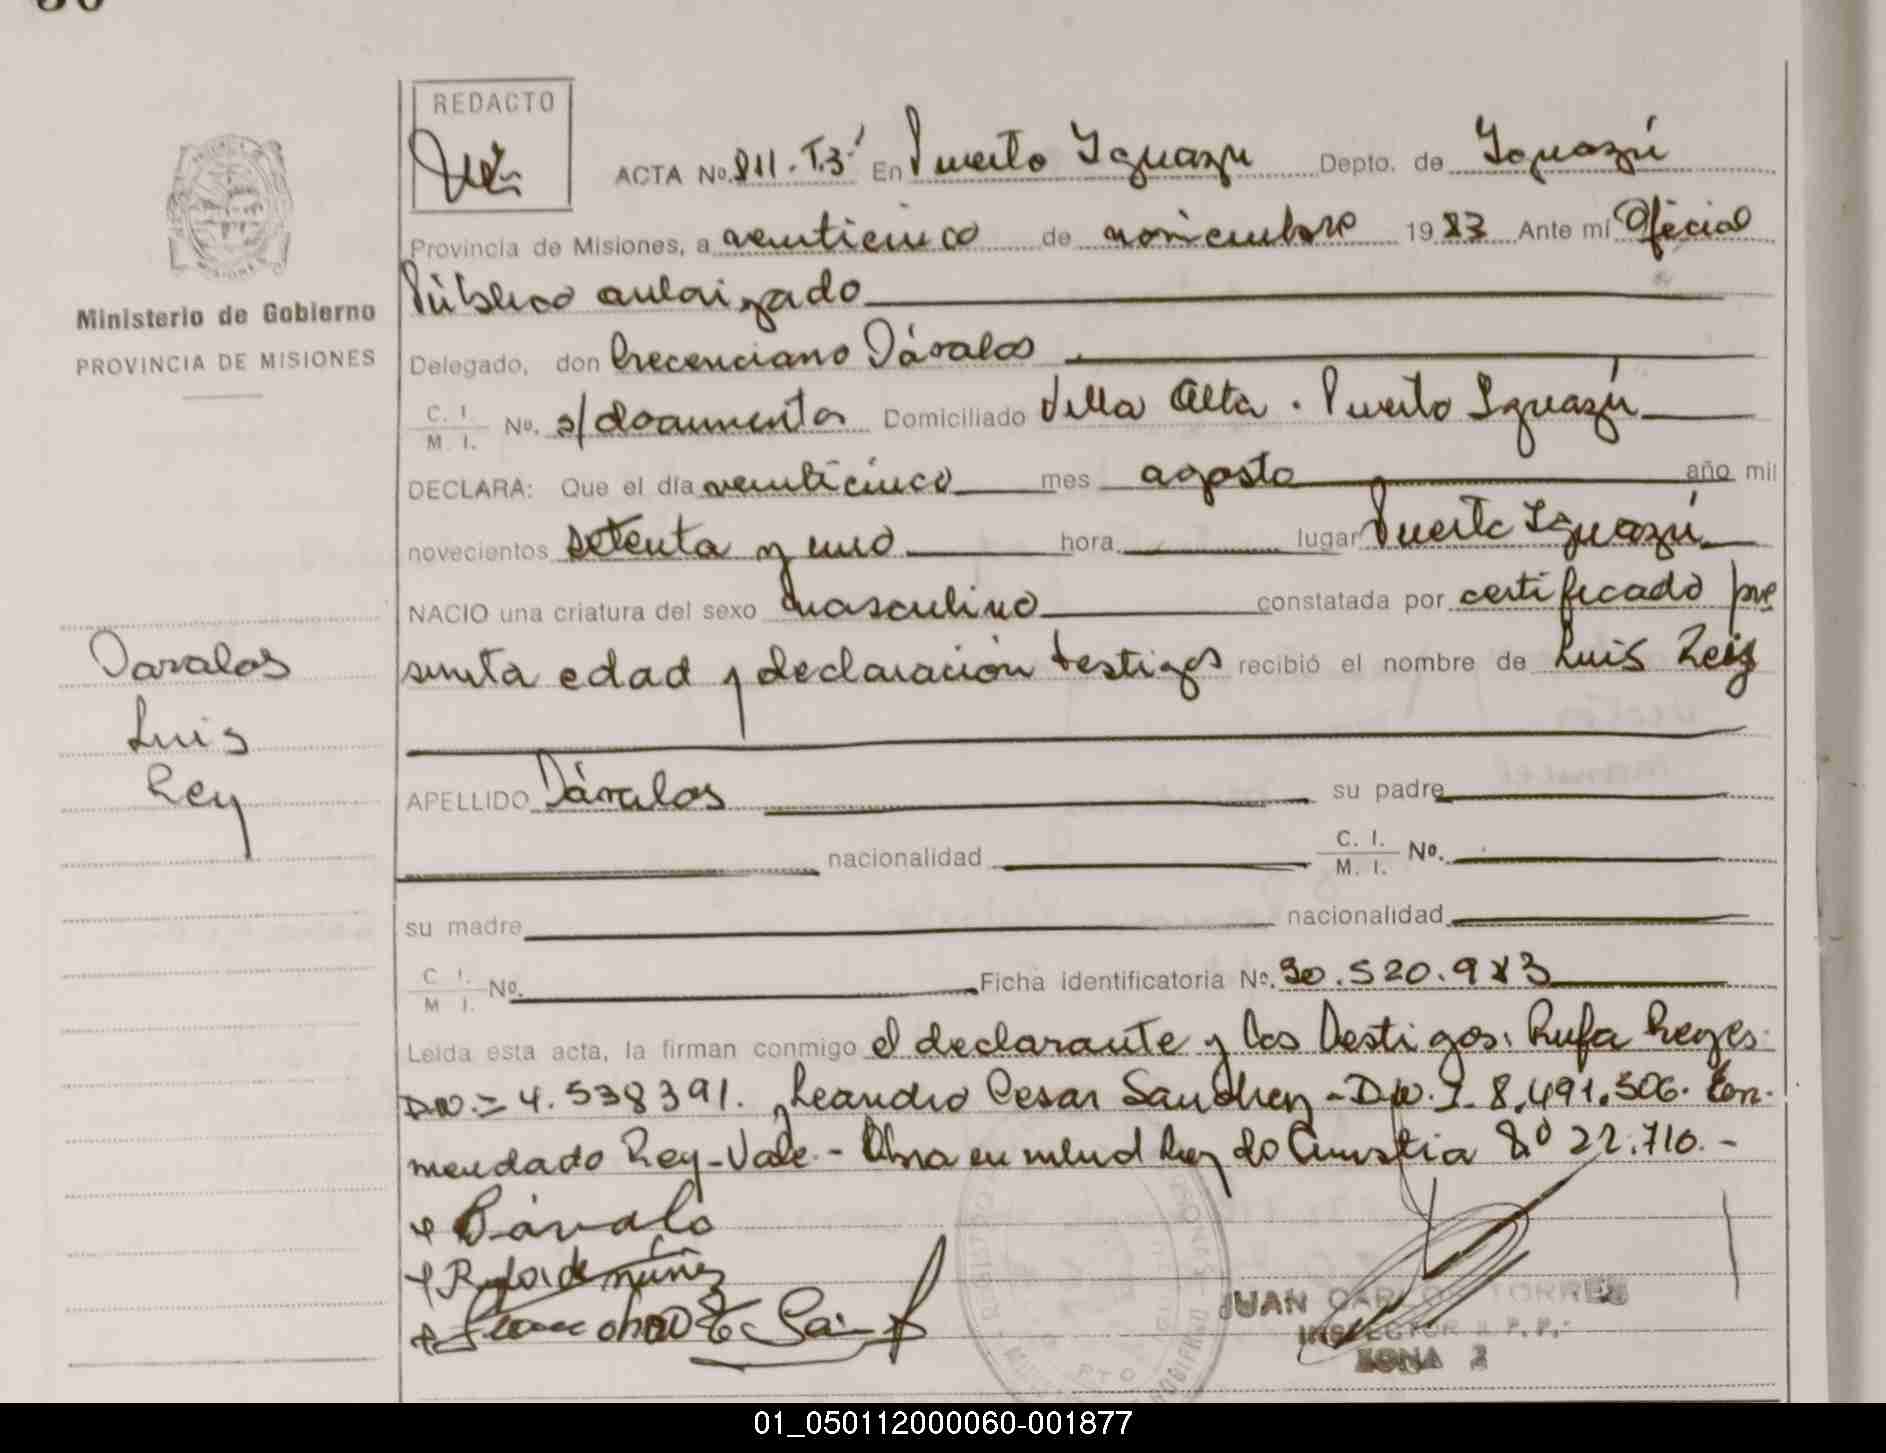 REDACTO
ACTA No. 811. T.3 En Puerto Iguazu Depto. de Iguazú
Provincia de Misiones, a veinticinco de noviembre 1983 Ante mí Oficial
Público autorizado
Ministerio de Gobierno
PROVINCIA DE MISIONES
Delegado, don Crecenciano Dávalos
C. I. M. I. No. s/documento Domiciliado Villa Alta. Puerto Iguazú
DECLARA: Que el día veinticinco mes agosto año mil
novecientos setenta y uno hora lugar Puerto Iguazú
NACIO una criatura del sexo masculino constatada por certificado pre
sunta edad y declaración testigos recibió el nombre de Luis Rey
Davalos
Luis
Rey
APELLIDO Dávalos su padre
nacionalidad C. I. M. I. No.
su madre nacionalidad
C. I. M. I. No. Ficha identificatoria No. .520.9
Leída esta acta, la firman conmigo el declarante y los testigos: Rufa Reyes
4.538391. Leandro Cesar Sanchez - 8.491.506. En-
mendado Rey-Vale.- Ley de Amnistia 22.710.-
Dávalo
JUAN CARLOS TORRES
INSPECTOR R.P.P.
ZONA 2
01_050112000060-001877